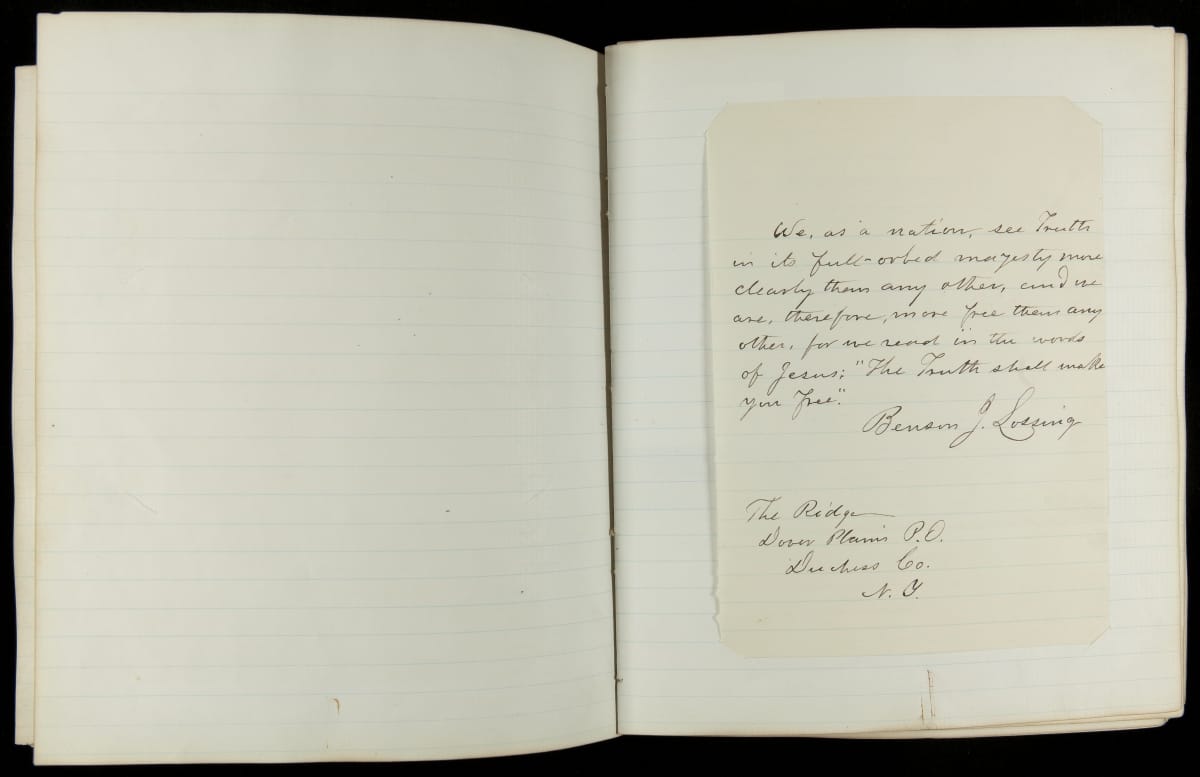 We, as a nation, see Truth
in its full-orbed majesty more
clearly than any other, and we
are, therefore, more free than any
other, for we read in the words
of Jesus; "The Truth shall make
you free."
Benson J. Lossing
The Ridge
Dover Plains P.O.
Duchess Co.
N. Y.